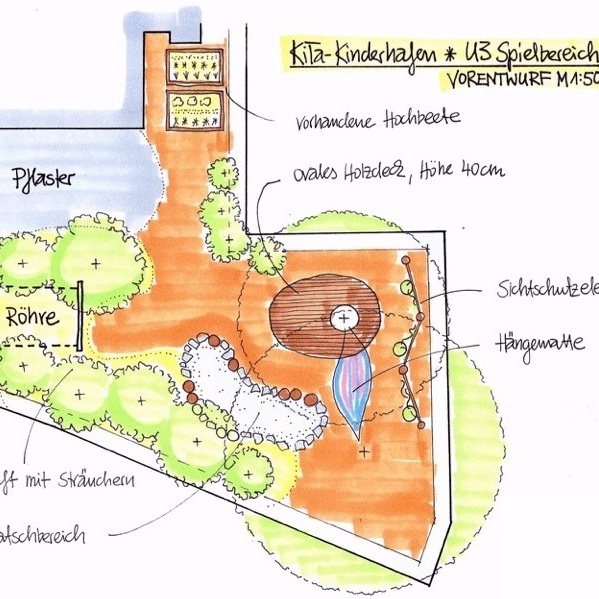 KiTa-Kinderhafen * U3 Spielbereich
VORENTWURF M 1:50
vorhandene Hochbeete
Pflaster
ovales Holzdeck, Höhe 40cm
Sichtschutzele
Röhre
Hängematte
ft mit Sträuchern
atschbereich